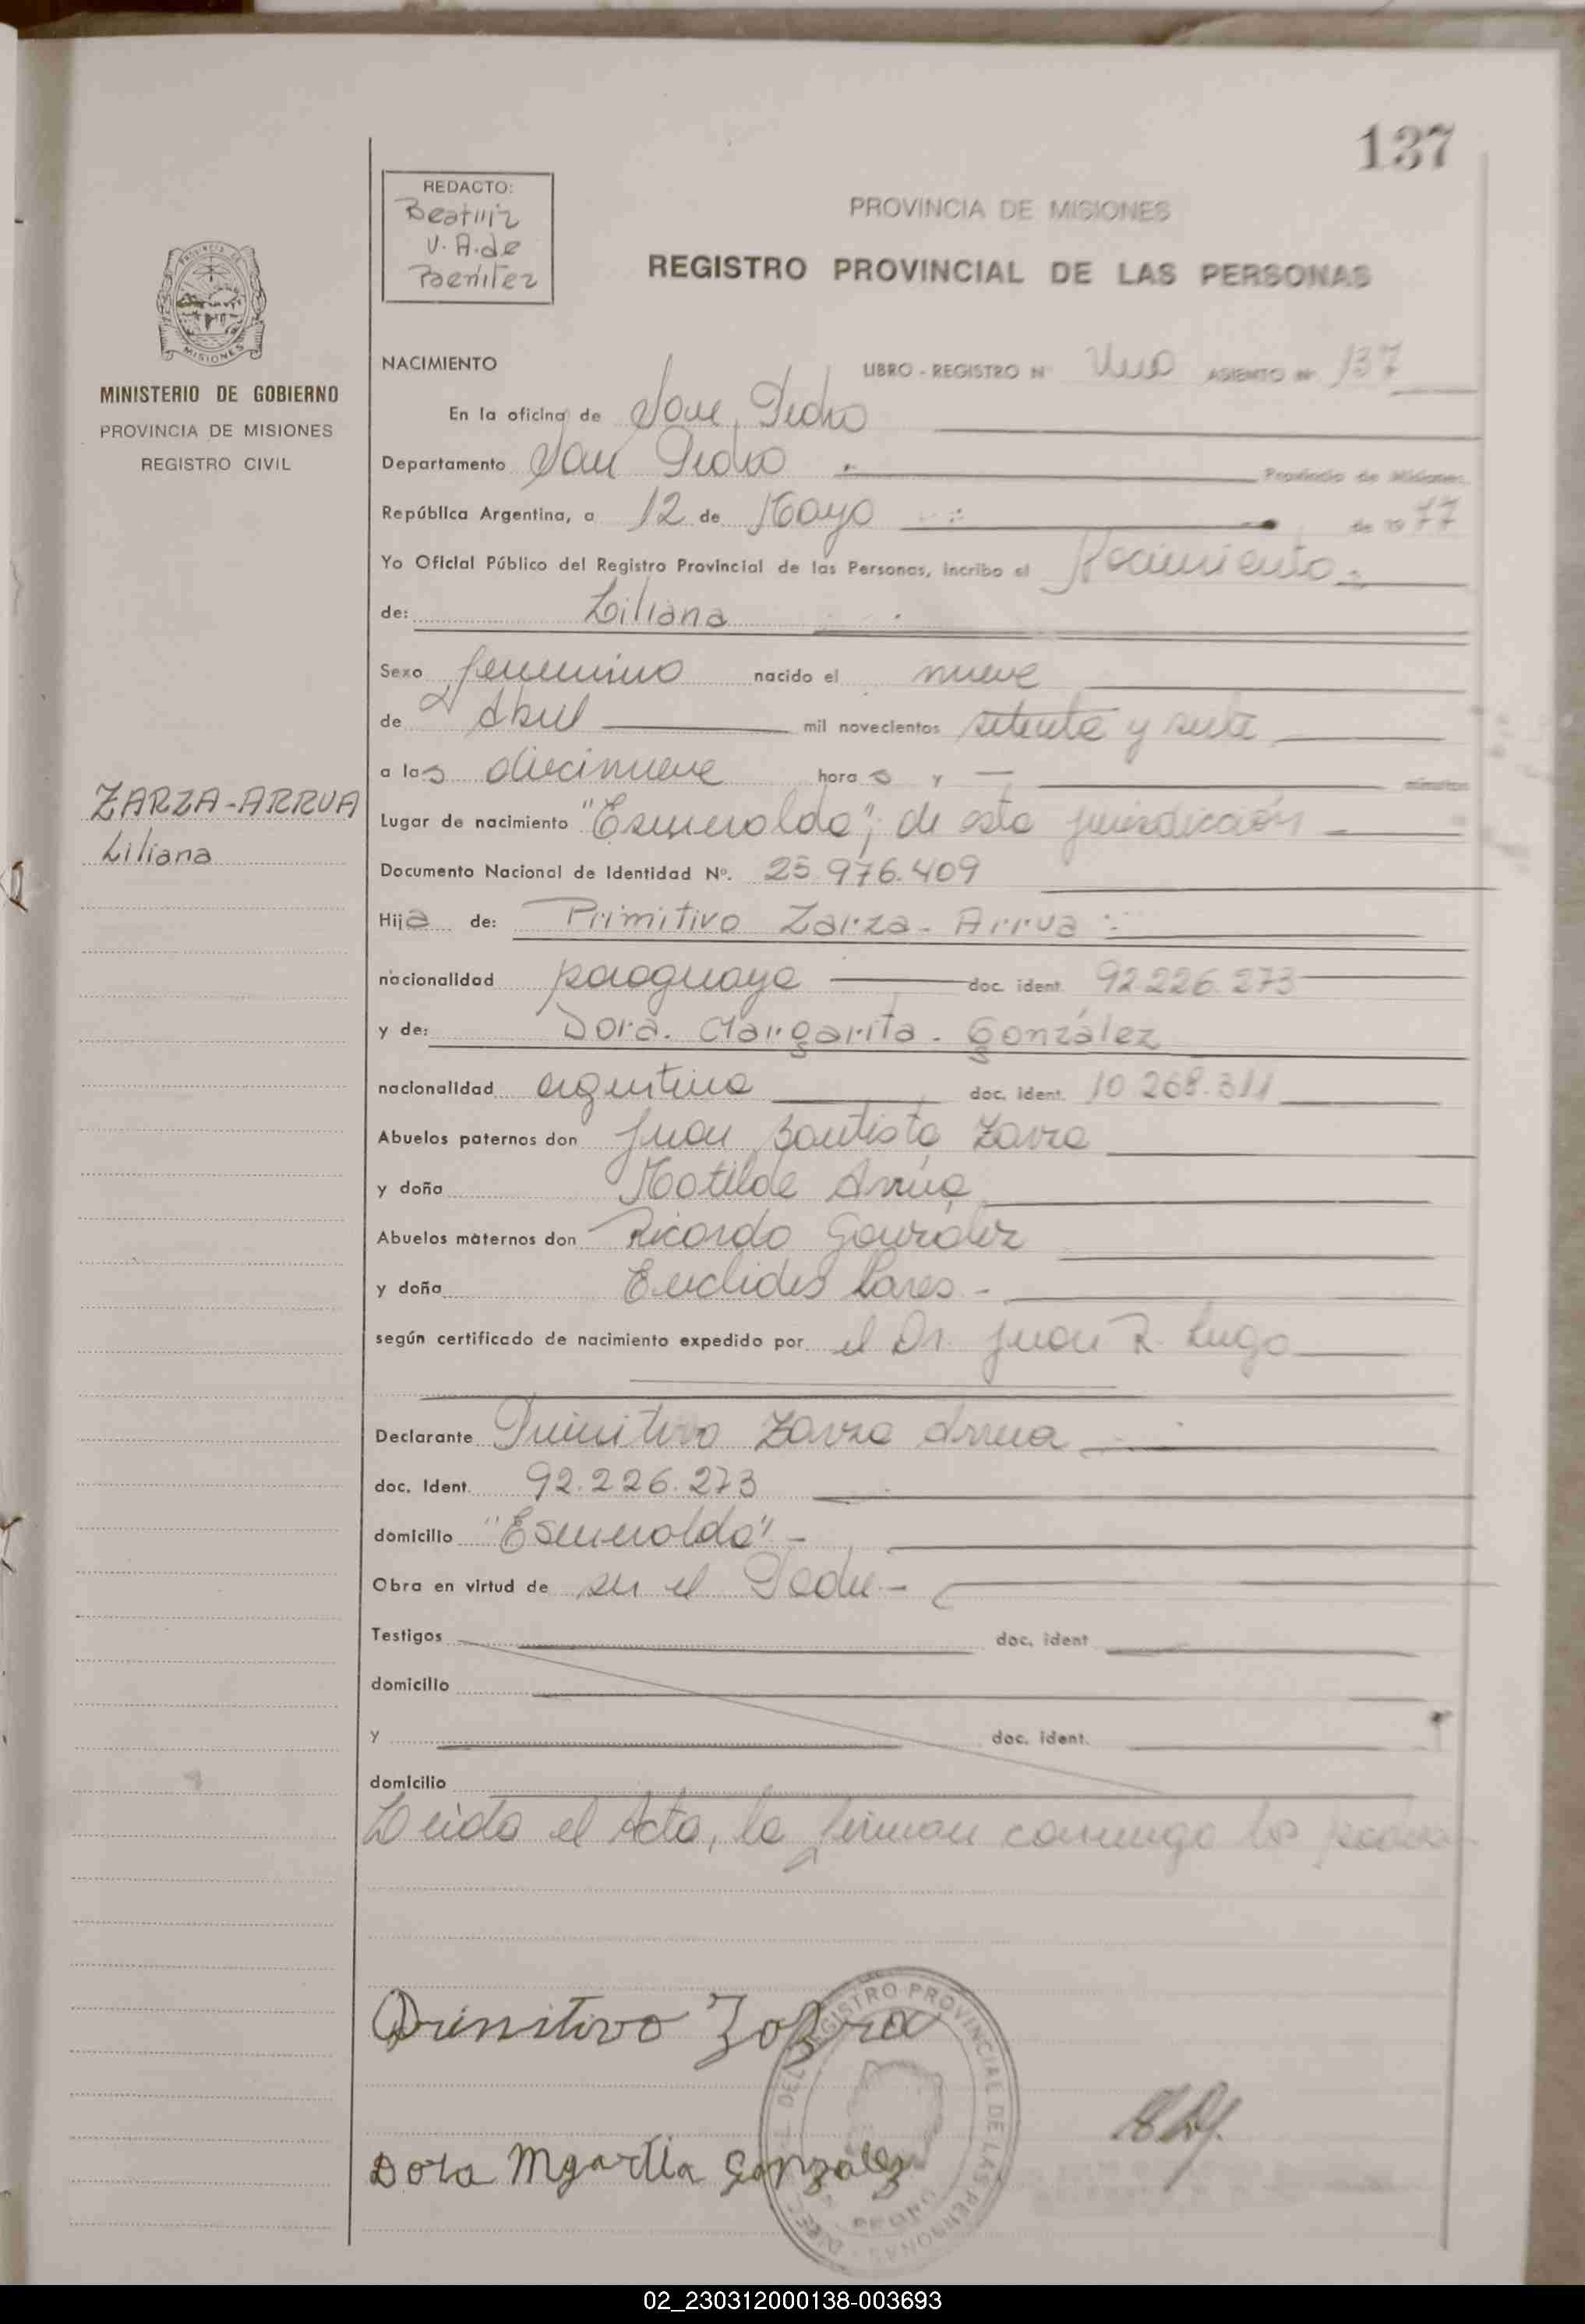 137
REDACTO:
Beatriz
V. A. de
Benitez
PROVINCIA DE MISIONES
REGISTRO PROVINCIAL DE LAS PERSONAS
MISIONES
MINISTERIO DE GOBIERNO
PROVINCIA DE MISIONES
REGISTRO CIVIL
NACIMIENTO
LIBRO - REGISTRO Nº Uno ASIENTO Nº 137
En la oficina de San Pedro
Departamento San Pedro Provincia de Misiones
República Argentina, a 12 de Mayo de 1977
Yo Oficial Público del Registro Provincial de las Personas, incribo el Nacimiento
de: Liliana
Sexo femenino nacido el nueve
de Abril mil novecientos setenta y siete
a las diecinueve horas y — minutos
ZARZA-ARRUA
Liliana
Lugar de nacimiento "Esmeralda", de esta jurisdicción
Documento Nacional de Identidad Nº. 25.976.409
Hija de: Primitivo Zarza - Arrua
nacionalidad paraguaya doc. ident. 92.226.273
y de: Dora. Margarita - González
nacionalidad argentina doc. ident. 10.268.311
Abuelos paternos don Juan Bautista Zarza
y doña Matilde Arrúa
Abuelos maternos don Ricardo González
y doña Euclides
según certificado de nacimiento expedido por el Dr. Juan R. Lugo
Declarante Primitivo Zarza Arrua
doc. Ident. 92.226.273
domicilio "Esmeralda" -
Obra en virtud de ser el Padre -
Testigos doc. ident
domicilio
y doc. ident.
domicilio
Leida el Acta, la firman conmigo los padres
Primitivo Zarza
Dora Mgartia Gonzalez
DEL REGISTRO PROVINCIAL DE LAS PERSONAS
PEDRO
02_230312000138-003693